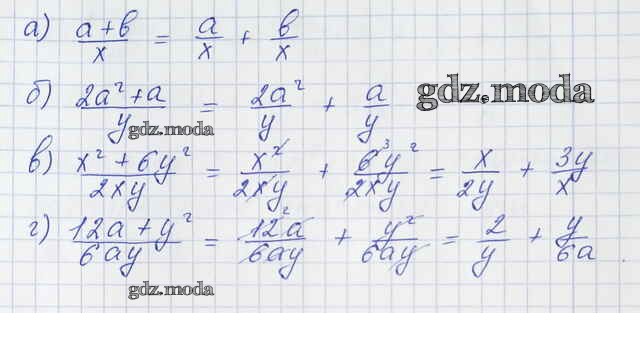 а) (a+b)/x = a/x + b/x
б) (2a²+a)/y = 2a²/y + a/y gdz.moda
gdz.moda
в) (x²+6y²)/2xy = x²/2xy + 6³y²/2xy = x/2y + 3y/x
г) (12a+y²)/6ay = 12²a/6ay + y²/6ay = 2/y + y/6a .
gdz.moda